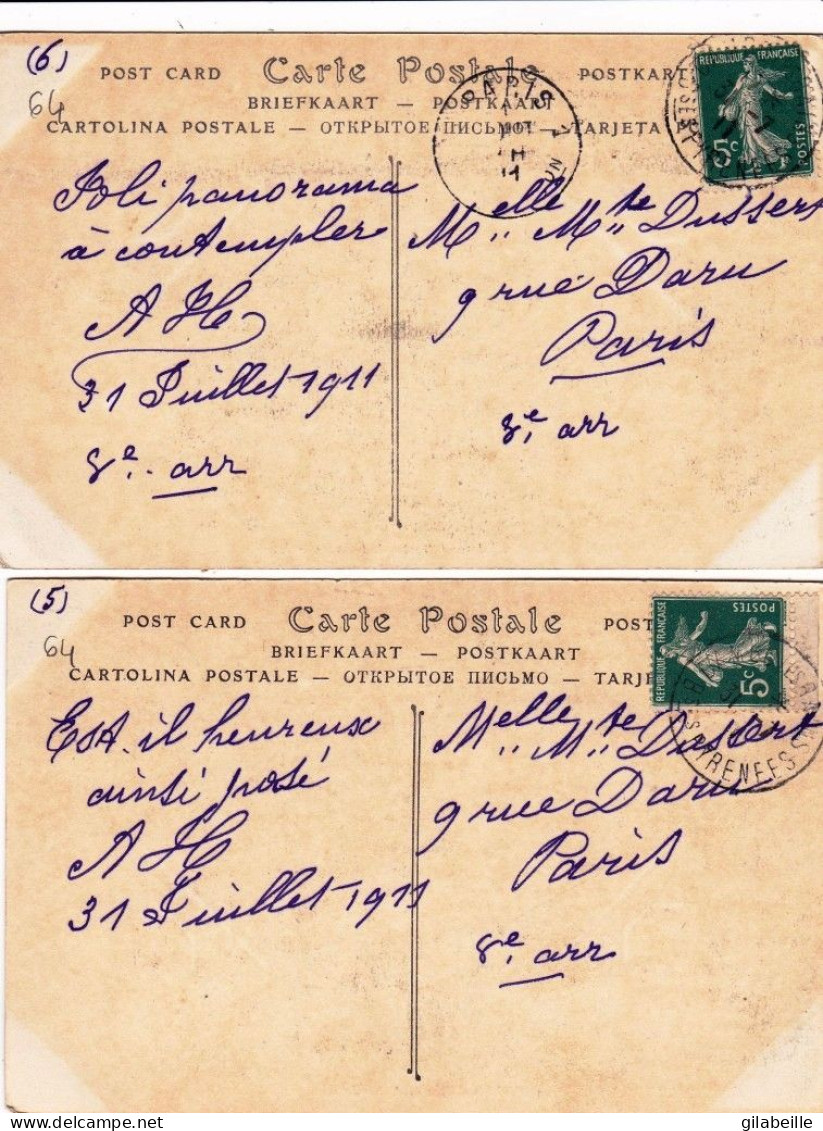 (6)
64
POST CARD Carte Postale POSTKART
BRIEFKAART — POSTKAART
CARTOLINA POSTALE — ОТКРЫТОЕ ПИСЬМО — TARJETA
REPUBLIQUE FRANÇAISE
5c
POSTES
PARIS
PYRENEES
Joli panorama
à contempler
A H
31 Juillet 1911
8e. arr
Melle Mte Dussert
9 rue Daru
Paris
8e. arr
(5)
64
POST CARD Carte Postale POST
BRIEFKAART — POSTKAART
CARTOLINA POSTALE — ОТКРЫТОЕ ПИСЬМО — TARJE
REPUBLIQUE FRANÇAISE
5c
POSTES
PYRENEES
Est-il heureux
ainsi posé
A H
31 Juillet 1911
Melle Mte Dussert
9 rue Daru
Paris
8e. arr
gilabeille